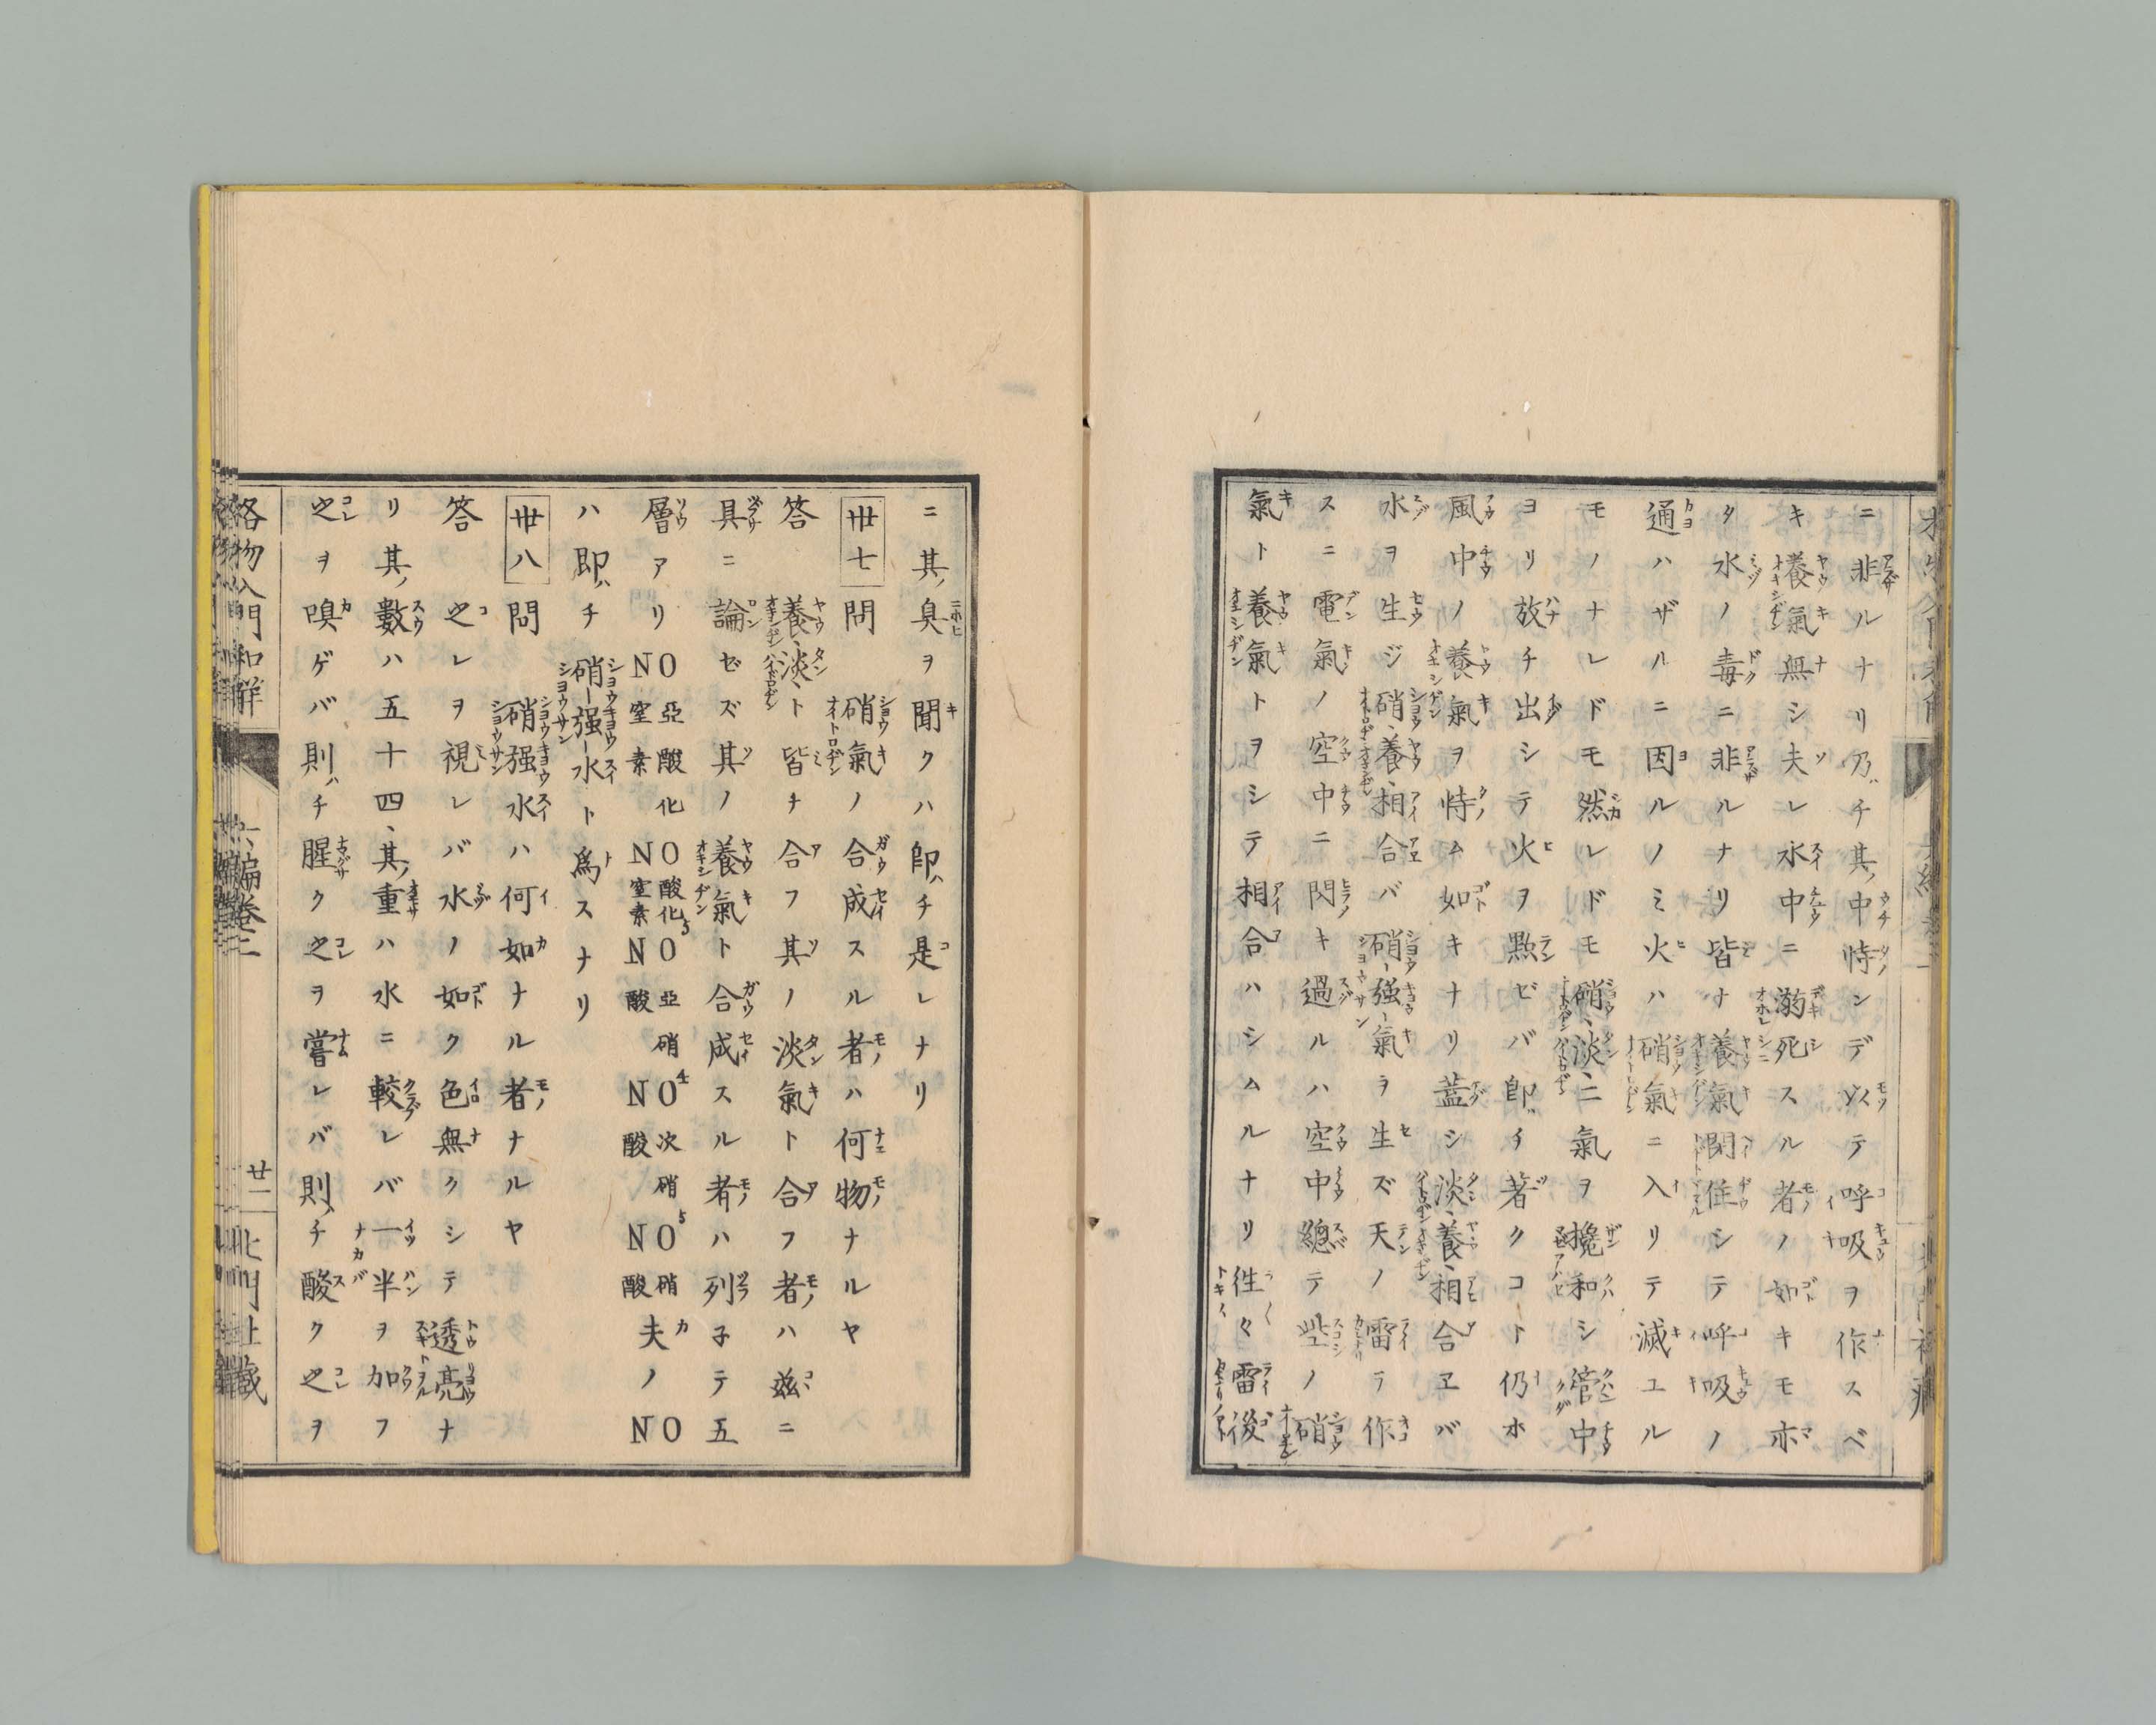 ニ非ルナリ乃チ其ノ中恃ンデ以テ呼吸ヲ作スベ
キ養氣無シ夫レ水中ニ溺死スル者ノ如キモ亦
タ水ノ毒ニ非ルナリ皆ナ養氣閉住シテ呼吸ノ
通ハザルニ因ルノミ火ハ硝氣ニ入リテ滅ユル
モノナレドモ然レドモ硝、淡、二氣ヲ攙和シ管中
ヨリ放チ出シテ火ヲ點ゼバ即チ著クコト仍ホ
風中ノ養氣ヲ恃ム如キナリ蓋シ淡、養、相合ヱバ
水ヲ生ジ硝、養、相合バ硝強氣ヲ生ズ天ノ雷ヲ作
スニ電氣ノ空中ニ閃キ過ルハ空中總テ些ノ硝
氣ト養氣トヲシテ相合ハシムルナリ徃々雷後
ニ其ノ臭ヲ聞クハ即チ是レナリ
卅七 問 硝氣ノ合成スル者ハ何物ナルヤ
答 養、淡、ト皆ナ合フ其ノ淡氣ト合フ者ハ茲ニ
具ニ論ゼズ其ノ養氣ト合成スル者ハ列子テ五
層アリ NO 亞酸化窒素 NO 酸化窒素 NO3 亞硝酸 NO4 次硝酸 NO5 硝酸 夫ノNO
ハ即チ硝强水ト爲スナリ
卅八 問 硝强水ハ何如ナル者ナルヤ
答 之レヲ視レバ水ノ如ク色無クシテ透亮ナ
リ其ノ數ハ五十四、其ノ重ハ水ニ較レバ一半ヲ加フ
之ヲ嗅ゲバ則チ腥ク之ヲ嘗レバ則チ酸ク之ヲ
格物入門和解 六編卷二 廿二 北門社藏